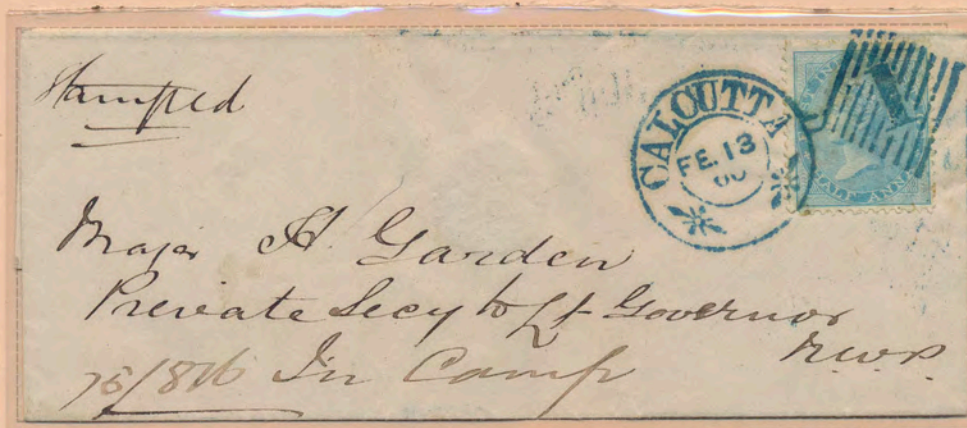 Stamped
CALCUTTA
FE. 13
1
HALF ANNA
Major H. Garden
Private Secy to Lt Governor
N.W.P.
In Camp